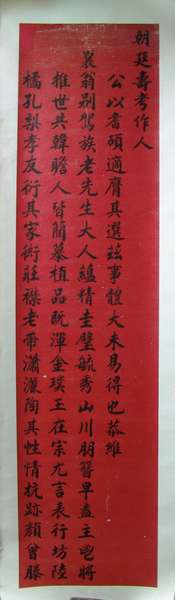 朝廷壽考作人
公以耆碩適膺其選茲事體大未易得也恭維
襄翁別駕族老先生大人蘊精圭璧毓秀山川朋簪早盍主鬯將
推世共韓瞻人皆藺慕植品既渾金璞玉在宗尤言表行坊陸
橘孔梨孝友衍其家術莊襟老帶瀟灑陶其性情抗跡顏曾滕